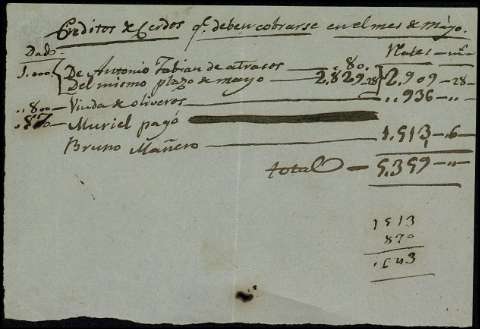 Creditos de Cerdos q.e deben cobrarse en el mes de mayo.
Dado Rales — mrs
1.000 De Antonio Fabian de atrasos — 80
Del mismo plazo de mayo — 2.829-28 2.909-28-
..800- Viuda de oliveros — ..936-..-
.870- Muriel pagó
Bruno Mañero — 1.513-6-
total — 5.359-..-
1513
870
.643